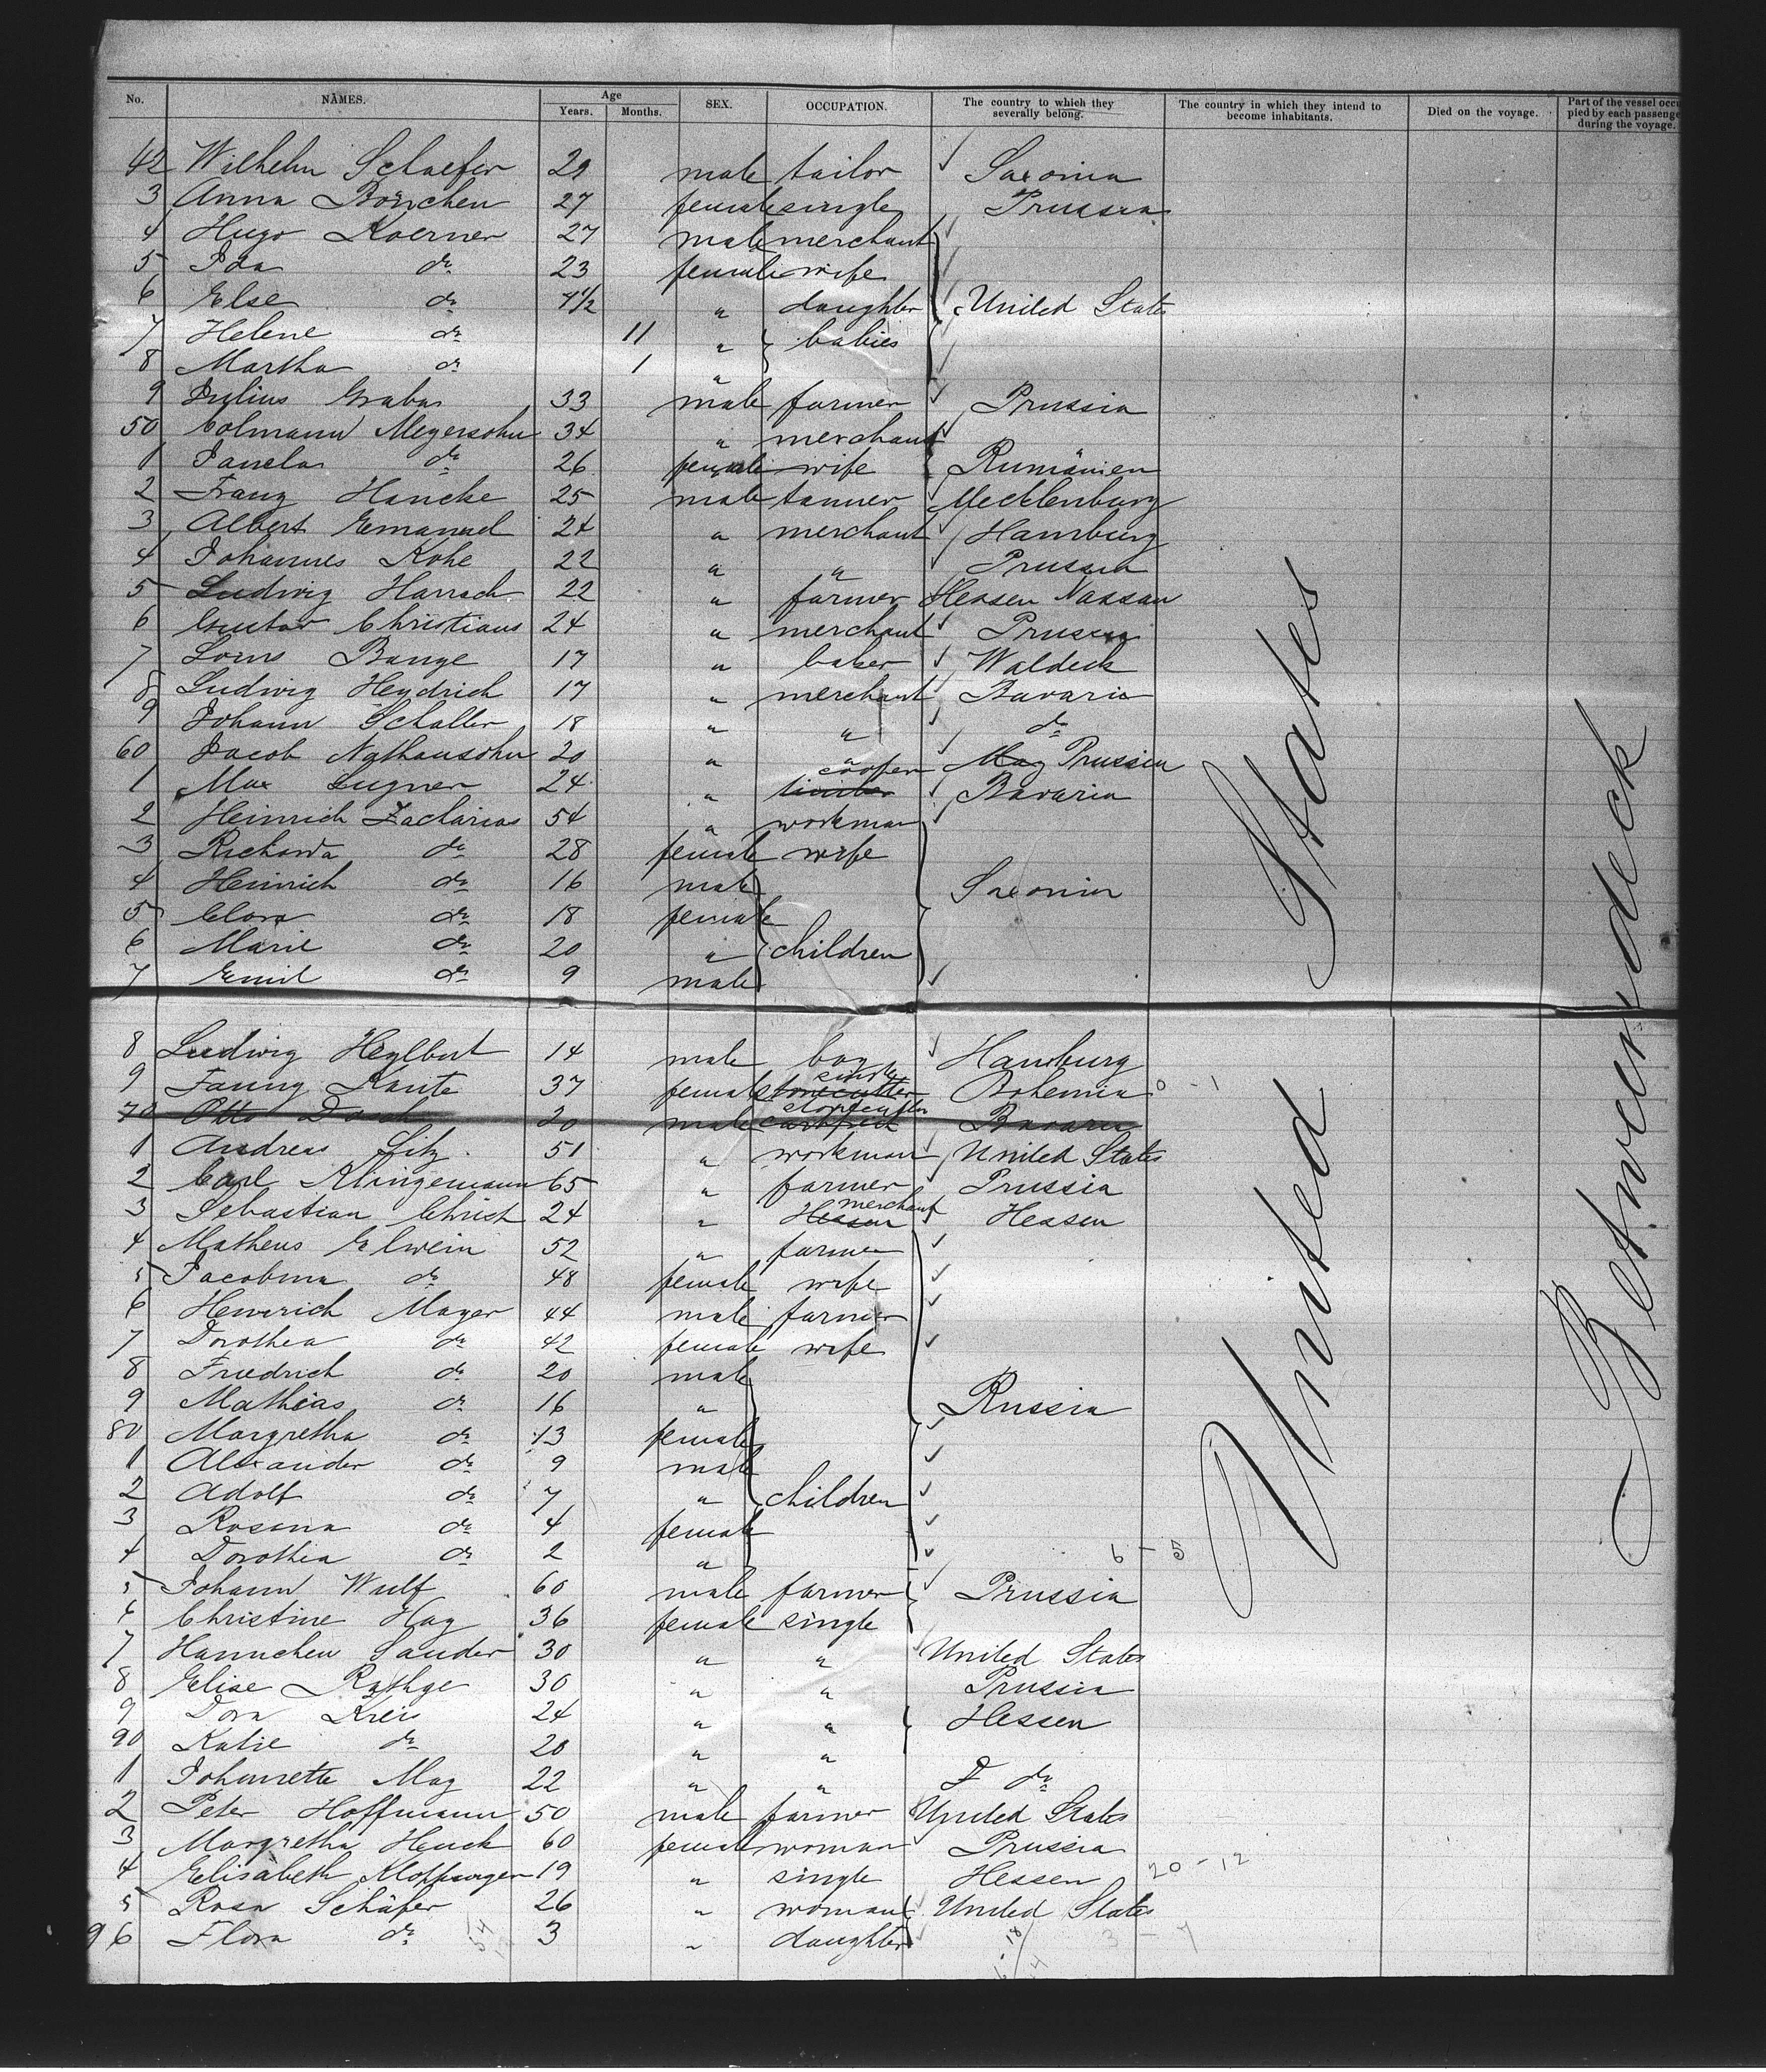 No. NAMES. Age Years. Months. SEX. OCCUPATION. The country to which they severally belong. The country in which they intend to become inhabitants. Died on the voyage. Part of the vessel occupied by each passenger during the voyage.
42 Wilhelm Schaefer 29 male tailor Saxonia
3 Anna Börnchen 27 female single Prussia
4 Hugo Koerner 27 male merchant
5 Ida do 23 female wife
6 Else do 4½ " daughter United States
7 Helene do 11 " babies
8 Martha do 1 "
9 Julius Grabar 33 male farmer Prussia
50 Colmann Meyersohn 34 " merchant
1 do 26 female wife Rumänien
2 Franz Hancke 25 male tanner Mecklenburg
3 Albert Emanuel 24 " merchant Hamburg
4 Johannes Kohe 22 " " Prussia
5 Ludwig Harrach 22 " farmer Hessen Nassau
6 Gustav Christians 24 " merchant Prussia
7 Louis Bange 17 " baker Waldeck
8 Ludwig Heydrich 17 " merchant Bavaria
9 Johann Schaller 18 " " do
60 Jacob Nathansohn 20 " " Prussia
1 Max Lugner 24 " cooper Bavaria
2 Heinrich Zacharias 54 " workman
3 Richarda do 28 female wife
4 Heinrich do 16 male Saxonia
5 Clara do 18 female
6 Marie do 20 " children
7 Emil do 9 male
8 Ludwig Heylbut 14 male boy Hamburg
9 Fanny Kante 37 female stonecutter single Bohemia 0-1
70 Otto 20 male stonecutter Bavaria
1 Andreas Sitz 51 " workman United States
2 Carl Klingemann 65 " farmer Prussia
3 Sebastian Christ 24 " Hessen merchant Hessen
4 Matheus Elwein 52 " farmer
5 Jacobina do 48 female wife
6 Heinrich Mayer 44 male farmer
7 Dorothea do 42 female wife
8 Friedrich do 20 male
9 Mathias do 16 " Russia
80 Margretha do 13 female
1 Alexander do 9 male
2 Adolf do 7 " children
3 Rosina do 4 female
4 Dorothea do 2 " 6-5
5 Johann Wulf 60 male farmer Prussia
6 Christine Hag 36 female single
7 Hannchen Sander 30 " " United States
8 Elise Rathge 30 " " Prussia
9 Dora Kreis 24 " " Hessen
90 Katie do 20 " "
1 Johanette May 22 " " do
2 Peter Hoffmann 50 male farmer United States
3 Margretha Henck 60 female woman Prussia
4 Elisabeth 19 " single Hessen 20-12
5 Rosa Schäfer 26 " woman United States
96 Flora do 3 " daughter 3-7
United States
Betweendeck